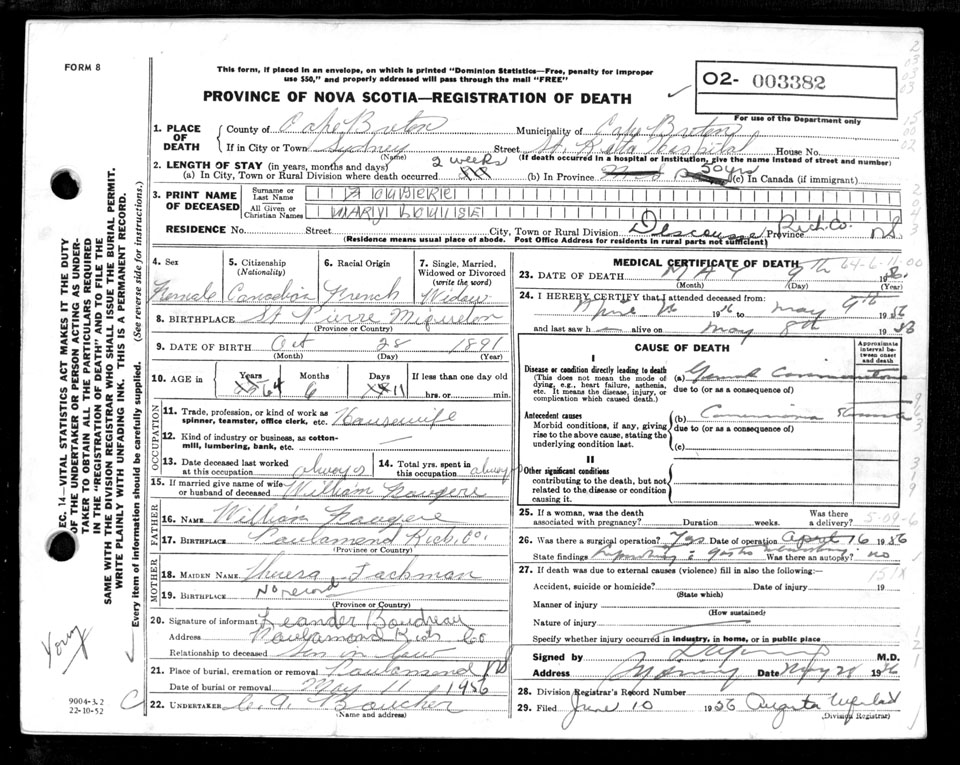 FORM 8
This form, if placed in an envelope, on which is printed "Dominion Statistics—Free, penalty for improper
use $50," and properly addressed will pass through the mail "FREE"
O2- 003382
For use of the Department only
PROVINCE OF NOVA SCOTIA—REGISTRATION OF DEATH
1. PLACE OF DEATH
County of Cape Breton Municipality of Cape Breton
If in City or Town Sydney Street St. Rita Hospital House No.
(Name) (If death occurred in a hospital or institution, give the name instead of street and number)
2. LENGTH OF STAY (in years, months and days)
(a) In City, Town or Rural Division where death occurred 2 weeks (b) In Province 50 yrs (c) In Canada (if immigrant)
3. PRINT NAME OF DECEASED
Surname or Last Name FOUGERE
All Given or Christian Names MARY LOUISE
RESIDENCE No. Street City, Town or Rural Division Descousse Rich. Co. Province N.S.
(Residence means usual place of abode. Post Office Address for residents in rural parts not sufficient)
4. Sex Female
5. Citizenship (Nationality) Canadian
6. Racial Origin French
7. Single, Married, Widowed or Divorced (write the word) Widow
8. BIRTHPLACE St Pierre Miquelon
(Province or Country)
9. DATE OF BIRTH Oct 28 1891
(Month) (Day) (Year)
10. AGE in Years 64 Months 6 Days 11 If less than one day old
hrs. or min.
OCCUPATION
11. Trade, profession, or kind of work as spinner, teamster, office clerk, etc. Housewife
12. Kind of industry or business, as cotton-mill, lumbering, bank, etc. —
13. Date deceased last worked at this occupation always
14. Total yrs. spent in this occupation always
15. If married give name of wife or husband of deceased William Fougere
FATHER
16. NAME William Fougere
17. BIRTHPLACE Poulamond Rich. Co.
(Province or Country)
MOTHER
18. MAIDEN NAME
19. BIRTHPLACE No record
(Province or Country)
20. Signature of informant Leander Boudreau
Address Poulamond Rich Co
Relationship to deceased Son in law
21. Place of burial, cremation or removal Poulamond NS
Date of burial or removal May 11 1956
22. UNDERTAKER C. A. Boucher
(Name and address)
MEDICAL CERTIFICATE OF DEATH
64-6-11-00
23. DATE OF DEATH MAY 9th 19
(Month) (Day) (Year)
24. I HEREBY CERTIFY that I attended deceased from
April 16 1956 to May 9th 1956
and last saw h alive on May 8th 1956
CAUSE OF DEATH
Approximate interval between onset and death
I
Disease or condition directly leading to death
(This does not mean the mode of dying, e.g., heart failure, asthma, etc. It means the disease, injury, or complication which caused death.)
(a)
due to (or as a consequence of)
Antecedent causes
Morbid conditions, if any, giving rise to the above cause, stating the underlying condition last.
(b)
due to (or as a consequence of)
(c)
II
Other significant conditions
contributing to the death, but not related to the disease or condition causing it.
25. If a woman, was the death associated with pregnancy? Duration weeks. Was there a delivery?
26. Was there a surgical operation? Yes Date of operation April 16 1956
State findings Was there an autopsy? no
27. If death was due to external causes (violence) fill in also the following:—
Accident, suicide or homicide? Date of injury 19
(State which)
Manner of injury
(How sustained)
Nature of injury
Specify whether injury occurred in industry, in home, or in public place
Signed by M.D.
Address Date May 28 1956
28. Division Registrar's Record Number
29. Filed June 10 1956 Augusta
(Division Registrar)
SEC. 14—VITAL STATISTICS ACT MAKES IT THE DUTY
OF THE UNDERTAKER OR PERSON ACTING AS UNDER-
TAKER TO OBTAIN ALL THE PARTICULARS REQUIRED
IN THE "REGISTRATION OF DEATH" AND TO FILE THE
SAME WITH THE DIVISION REGISTRAR WHO SHALL ISSUE THE BURIAL PERMIT.
WRITE PLAINLY WITH UNFADING INK. THIS IS A PERMANENT RECORD.
Every item of information should be carefully supplied. (See reverse side for instructions.)
9004-3.2
22-10-52